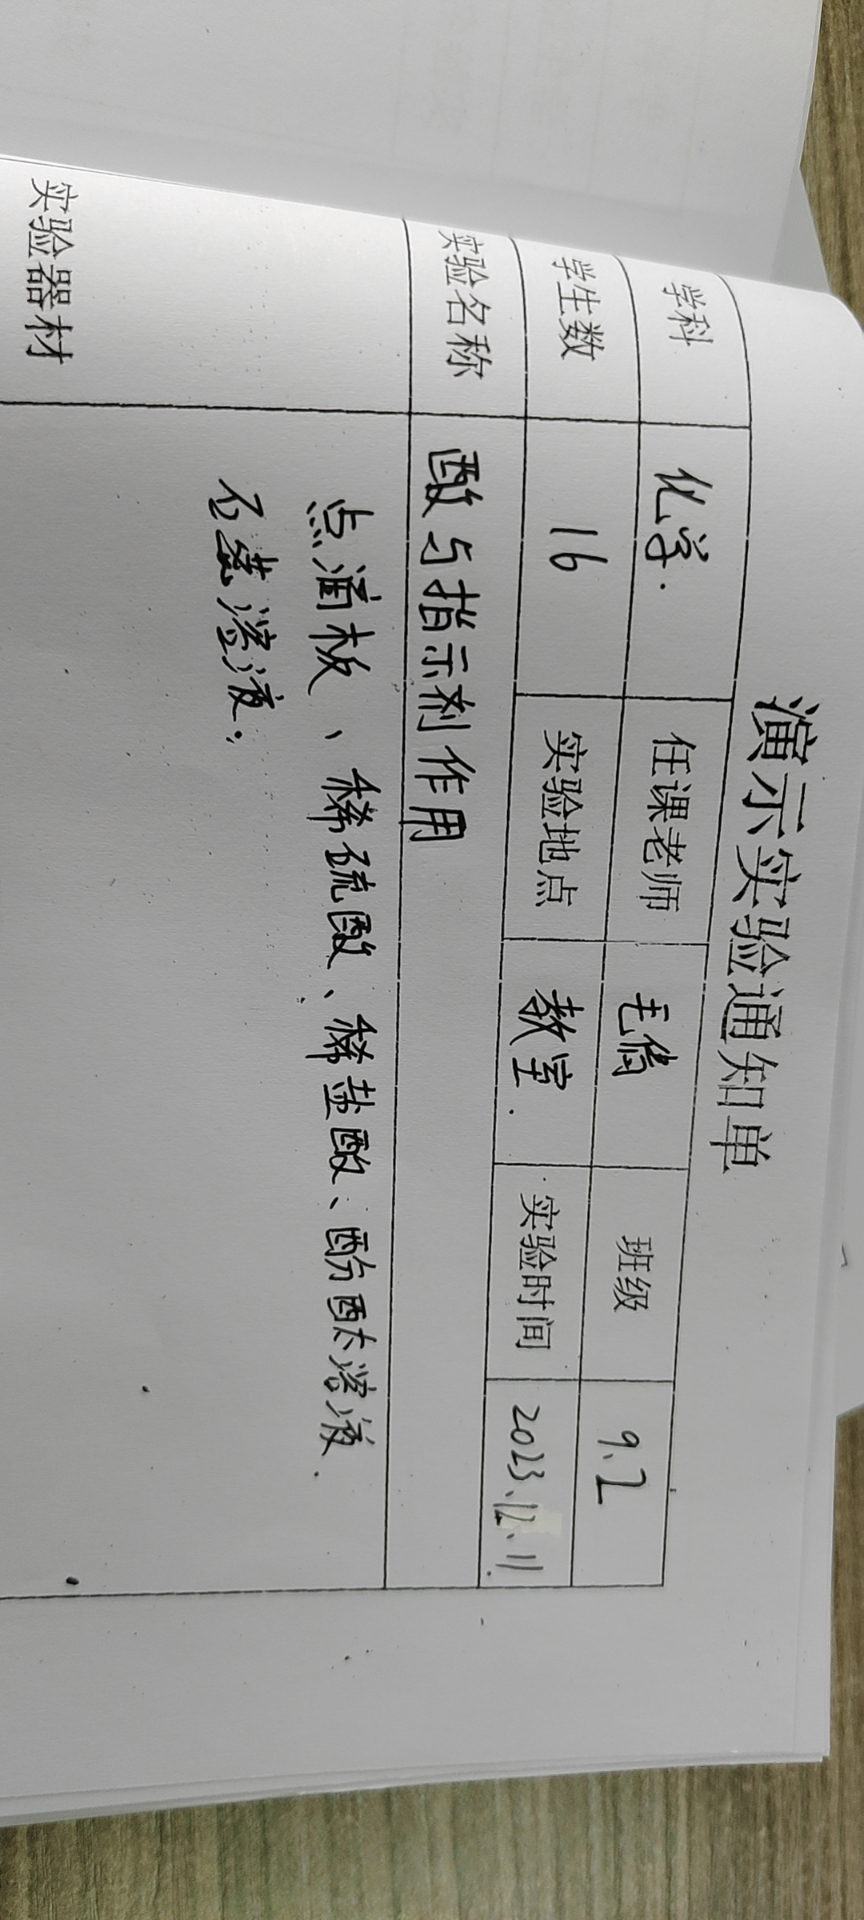 演示实验通知单
学科 化学. 任课老师 毛倩 班级 9.2
学生数 16 实验地点 教室. 实验时间 2023.12.11.
实验名称 酸与指示剂作用
实验器材 点滴板、稀硫酸、稀盐酸、酚酞溶液.
石蕊溶液。